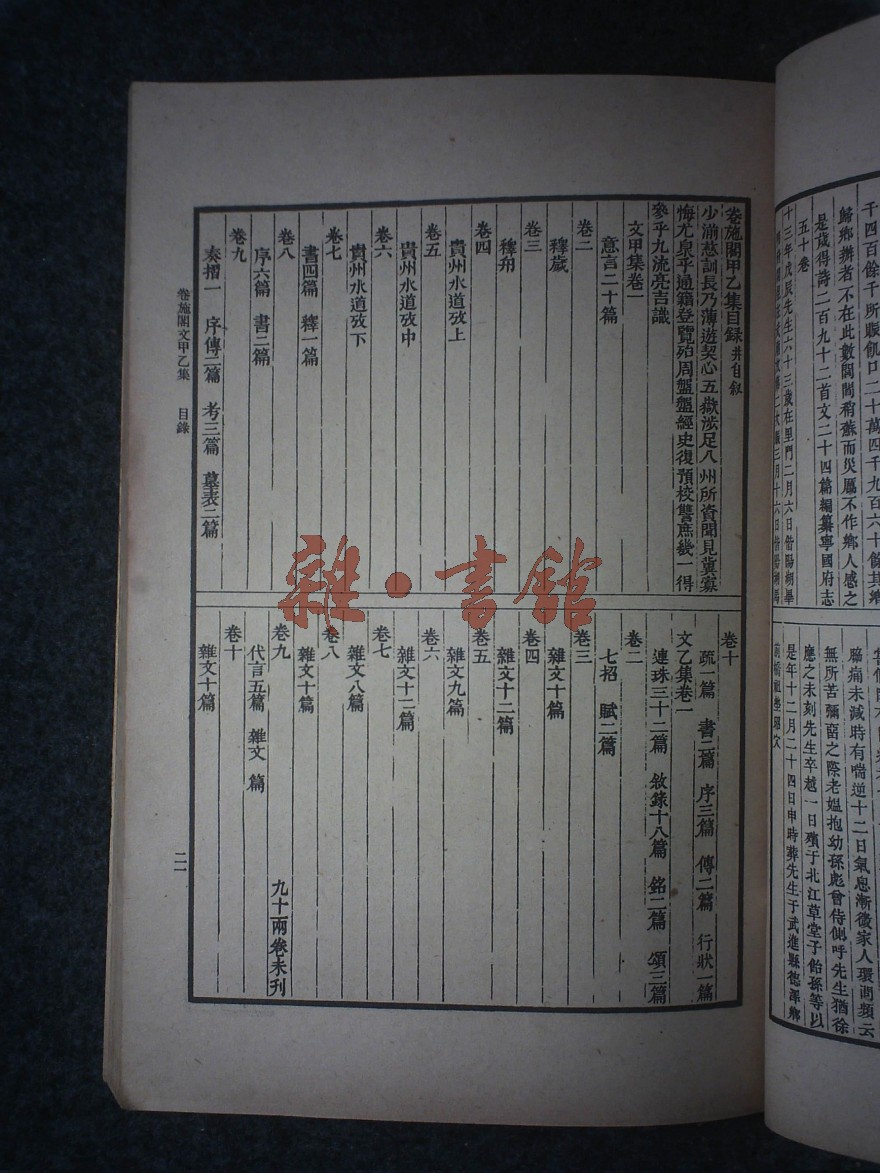 千四百餘千所賑飢口二十萬四千九百六十餘其鄉
歸鄉辦者不在此數閭閻稍蘇而災厲不作鄉人感之
是歲得詩二百九十二首文二十四篇編纂寧國府志
五十卷
十三年戊辰先生六十三歲在里門二月六日偕
三月十六日偕
腸痛未減時有喘逆十二日氣息漸微家人環問頻云
無所苦彌留之際老媼抱幼孫彪曾侍側呼先生猶徐
應之未刻先生卒越一日殯于北江草堂子飴孫等以
是年十二月二十四日申時葬先生于武進縣德澤鄉
卷施閣甲乙集目錄 并自敘
少湔慈訓長乃薄遊契心五嶽涉足八州所資聞見冀寡
悔尤泉乎通籍登覽殆周盤盤經史復預校讐庶幾一得
參乎九流亮吉識
文甲集卷一
意言二十篇
卷二
釋歲
卷三
釋舟
卷四
貴州水道攷上
卷五
貴州水道攷中
卷六
貴州水道攷下
卷七
書四篇 釋一篇
卷八
序六篇 書二篇
卷九
奏摺一 序傳二篇 考三篇 墓表二篇
卷十
疏一篇 書二篇 序三篇 傳二篇 行狀一篇
文乙集卷一
連珠三十二篇 敘錄十八篇 銘二篇 頌三篇
卷二
七招 賦二篇
卷三
雜文十篇
卷四
雜文十二篇
卷五
雜文九篇
卷六
雜文十二篇
卷七
雜文八篇
卷八
雜文十篇
卷九 九十兩卷未刊
代言五篇 雜文 篇
卷十
雜文十篇
卷施閣文甲乙集 目錄 二一
雜·書館